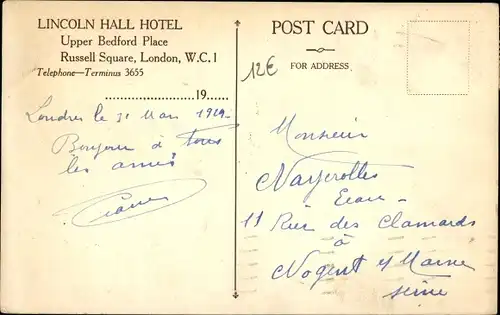 LINCOLN HALL HOTEL
Upper Bedford Place
Russell Square, London, W.C.1
Telephone—Terminus 3655
..............................19......
Londres le 31 Mars
Bonjour à tous
les amis
POST CARD
FOR ADDRESS
12€
Monsieur
Nayrolles
11 Rue des Clamards
à
Nogent s/ Marne
Seine